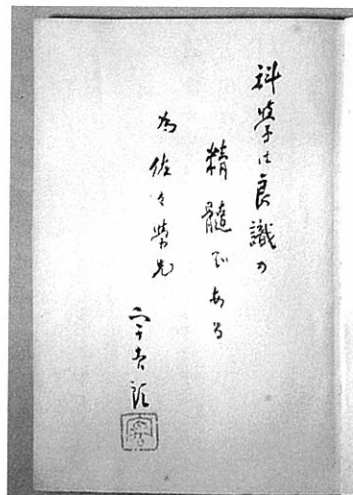 科学は良識の
精髄である
為佐々学兄
宇吉郎